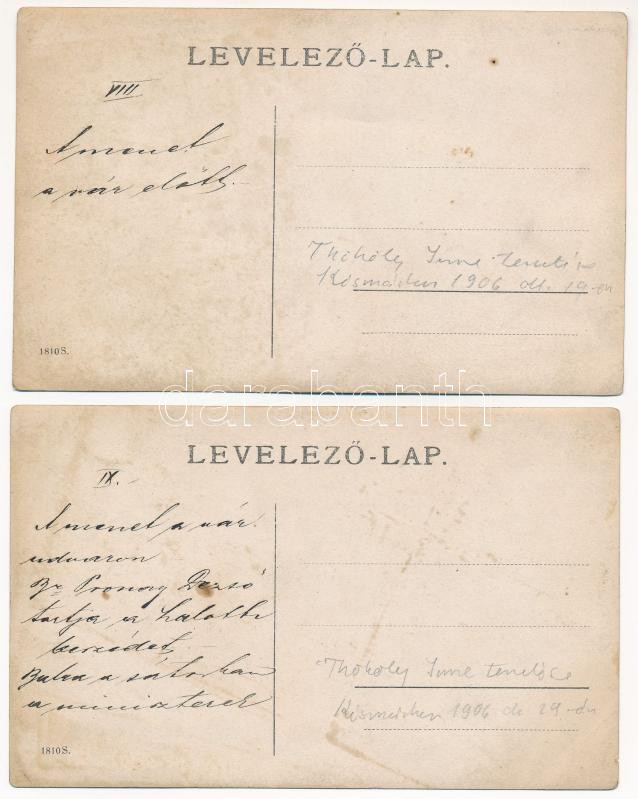 LEVELEZŐ-LAP.
VIII
A menet
a vár előtt.
Thököly Imre temetése
Késmárkon 1906 okt. 29-én
1810 S.
darabanth
LEVELEZŐ-LAP.
IX.
A menet a vár
udvaron
Br Pronay Dezső
tartja a halotti
beszédet
Balra a sátorban
a miniszterek
Thököly Imre temetése
Késmárkon 1906 okt 29-én
1810 S.